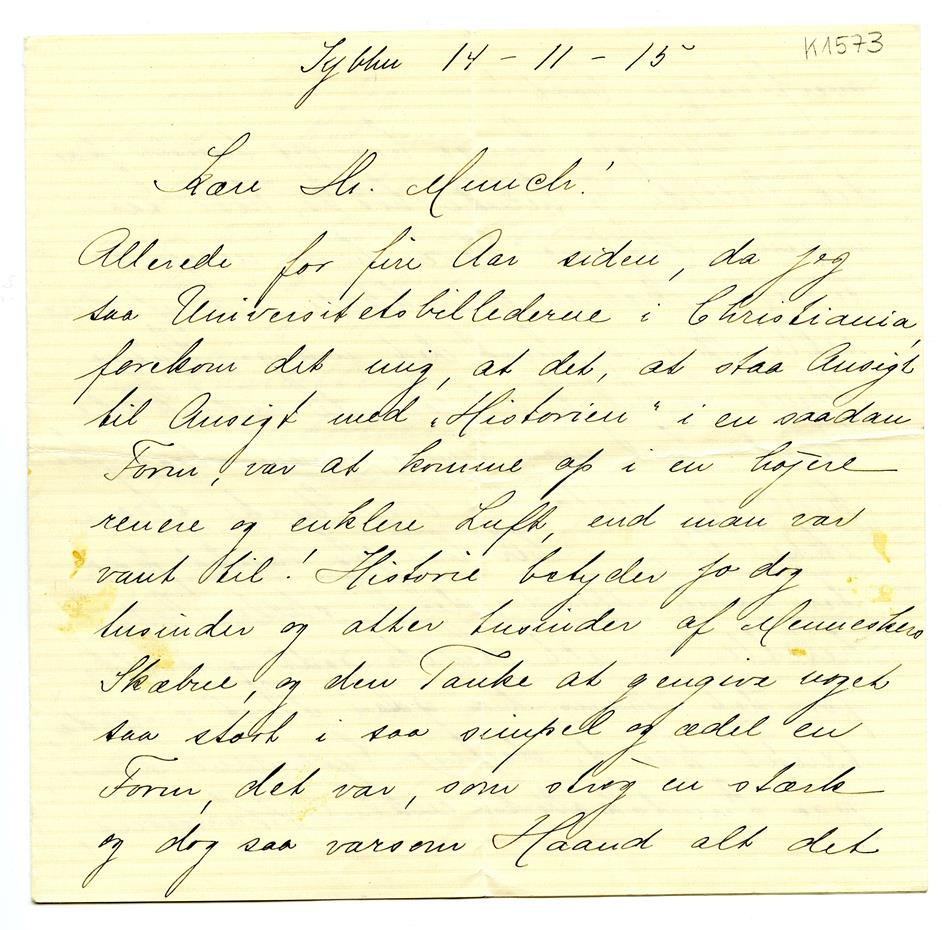 K1573
14 - 11 - 15
Kære Hr. Munch!
Allerede for fire Aar siden, da jeg
saa Universitetsbillederne i Christiania,
forekom det mig, at det, at staa Ansigt
til Ansigt med „Historien“ i en saadan
Form, var at komme op i en højere
renere og enklere Luft, end man var
vant til! Historie betyder jo dog
tusinder og atter tusinder af Menneskers
Skæbne, og den Tanke at gengive noget
saa stort i saa simpel og ædel en
Form, det var, som strøg en stærk
og dog saa varsom Haand alt det